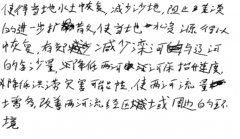 使得当地水土恢复,减少沙地,阻止草漠
的进一步扩大,使当地水资源得以
恢复,有效减少滦河与辽河
的含沙量,降低两河河床抬升速度,
降低洪涝灾害可能性,使两河流量
丰富,改善两河流经区域或周边的环
境